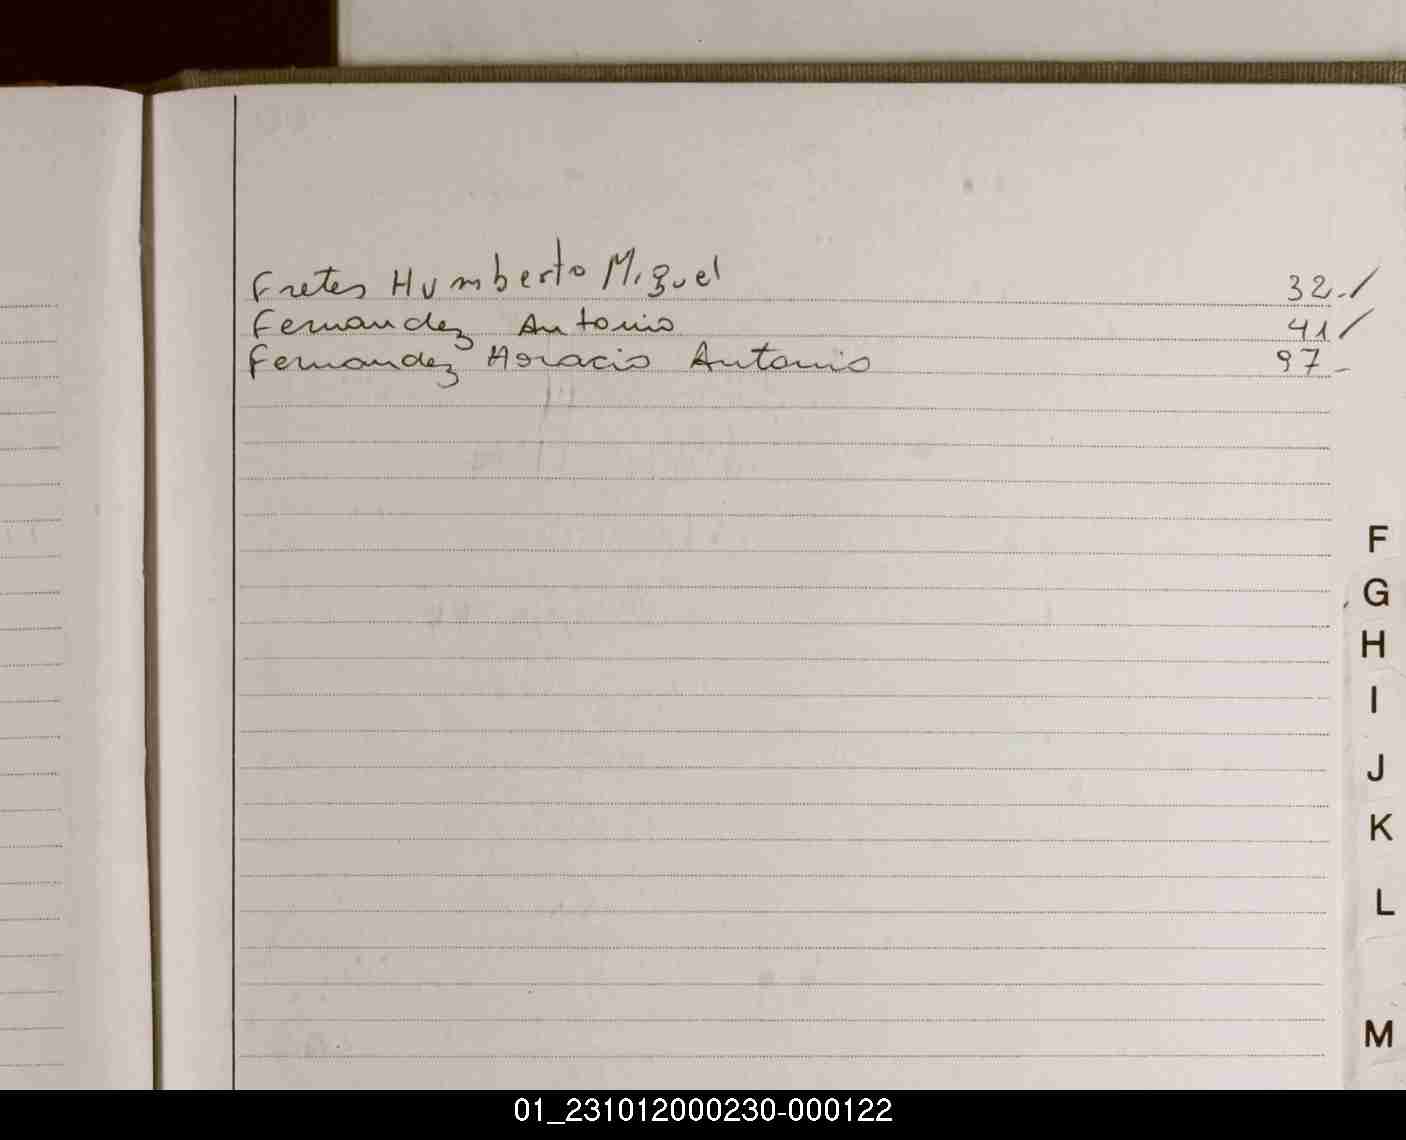 Fretes Humberto Miguel 32-/
Fernandez Antonio 41/
Fernandez Horacio Antonio 97-
F
G
H
I
J
K
L
M
01_231012000230-000122